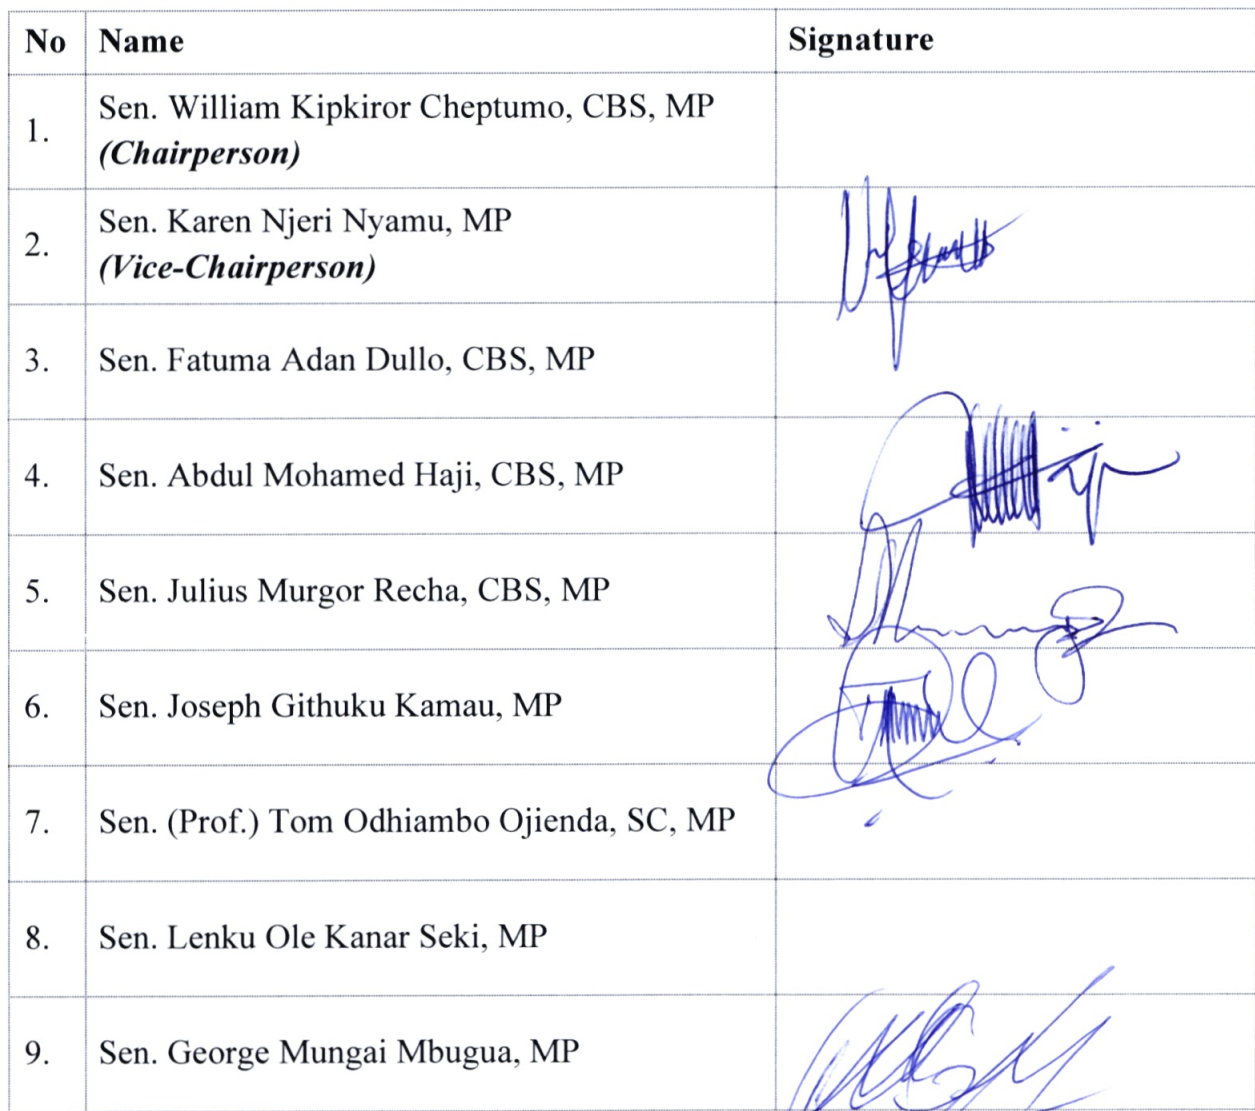 No Name Signature
1. Sen. William Kipkiror Cheptumo, CBS, MP
(Chairperson)
2. Sen. Karen Njeri Nyamu, MP
(Vice-Chairperson)
3. Sen. Fatuma Adan Dullo, CBS, MP
4. Sen. Abdul Mohamed Haji, CBS, MP
5. Sen. Julius Murgor Recha, CBS, MP
6. Sen. Joseph Githuku Kamau, MP
7. Sen. (Prof.) Tom Odhiambo Ojienda, SC, MP
8. Sen. Lenku Ole Kanar Seki, MP
9. Sen. George Mungai Mbugua, MP